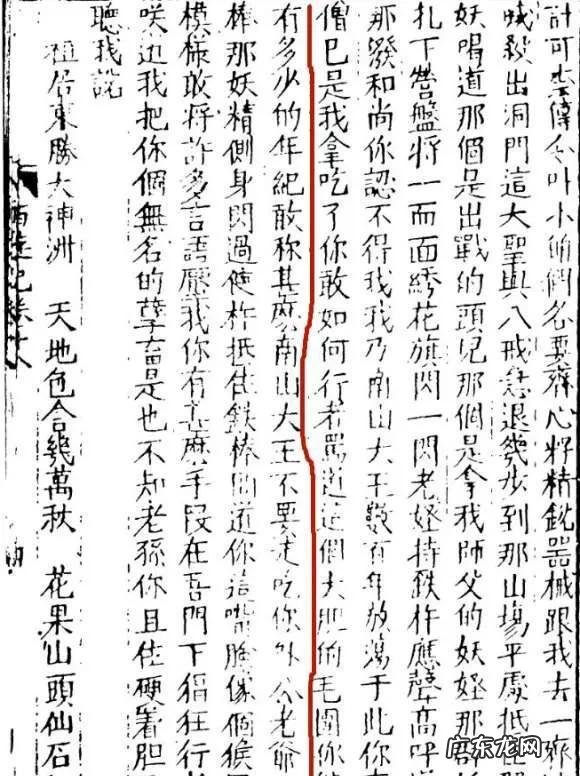 計可 小 們各要齊心 精銳器械跟我去一齊
喊殺出洞門這大聖與八戒急退幾步到那山塲平處抵
妖喝道那個是出戰的頭兒那個是拿我師父的妖怪那
扎下營盤將一面綉花旗閃一閃老怪持鉄杵應聲高呼
那潑和尚你認不得我我乃南山大王數有年放蕩于此你
僧巳是我拿吃了你敢如何行者罵道這個大胆的毛團你
有多少的年紀敢称甚麽南山大王不要走吃你外公老爺
棒那妖精側身閃過使杵抵住鉄棒 道你這嘴臉像個猴
模樣敢將許多言語壓我你有甚麽手段在吾門下猖狂行
咲道我把你個無名的孽畜是也不知老孫你且住硬着胆
聽我說
祖居東勝大神洲 天地包含幾萬秋 花果山頭仙石
广东龙网